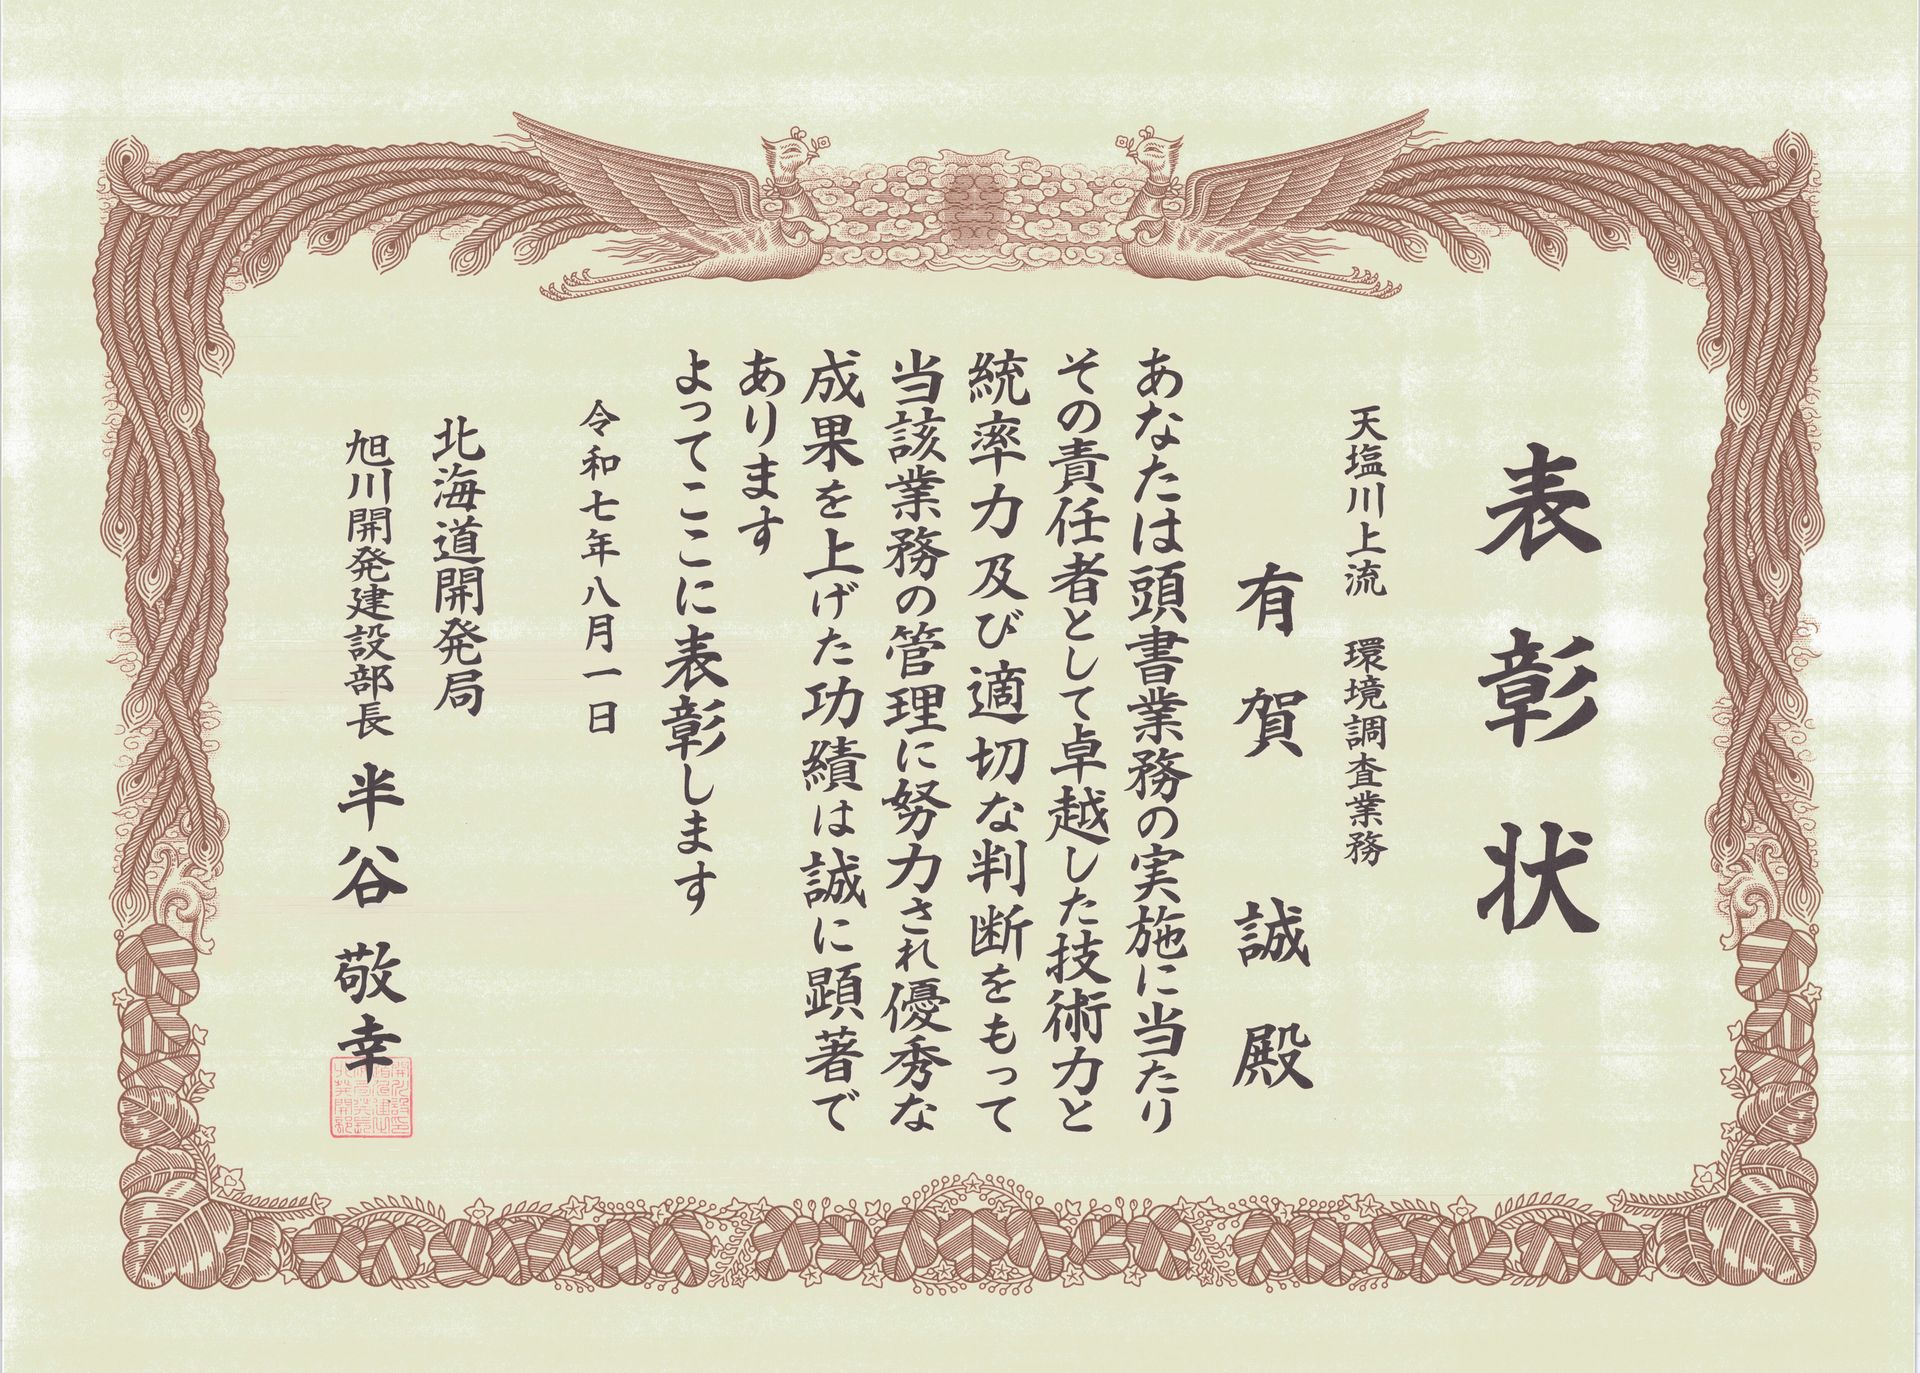 表彰状
天塩川上流　環境調査業務
有賀　誠　殿
あなたは頭書業務の実施に当たり
その責任者として卓越した技術力と
統率力及び適切な判断をもって
当該業務の管理に努力され優秀な
成果を上げた功績は誠に顕著で
あります
よってここに表彰します
令和七年八月一日
北海道開発局
旭川開発建設部長　半谷　敬幸